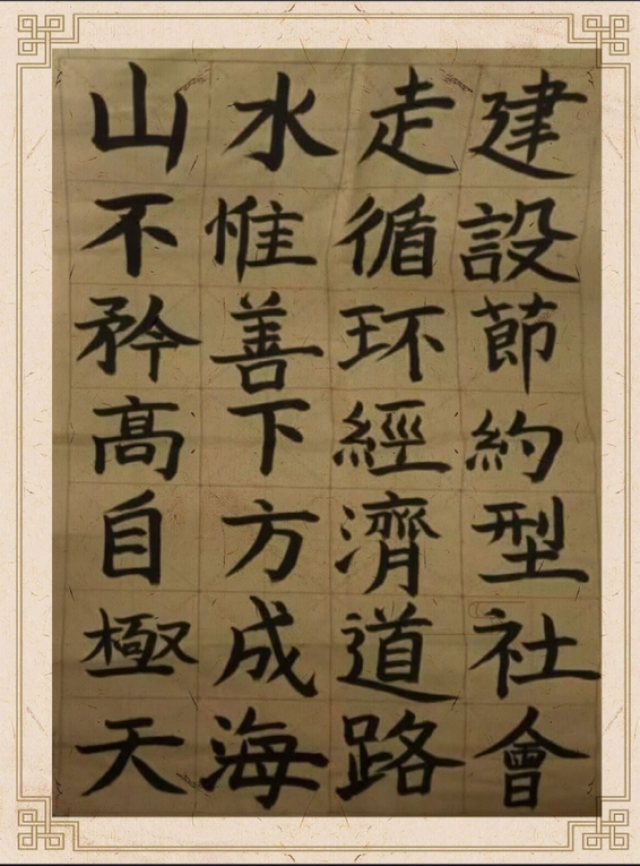 建設節約型社會
走循环經濟道路
水惟善下方成海
山不矜高自極天